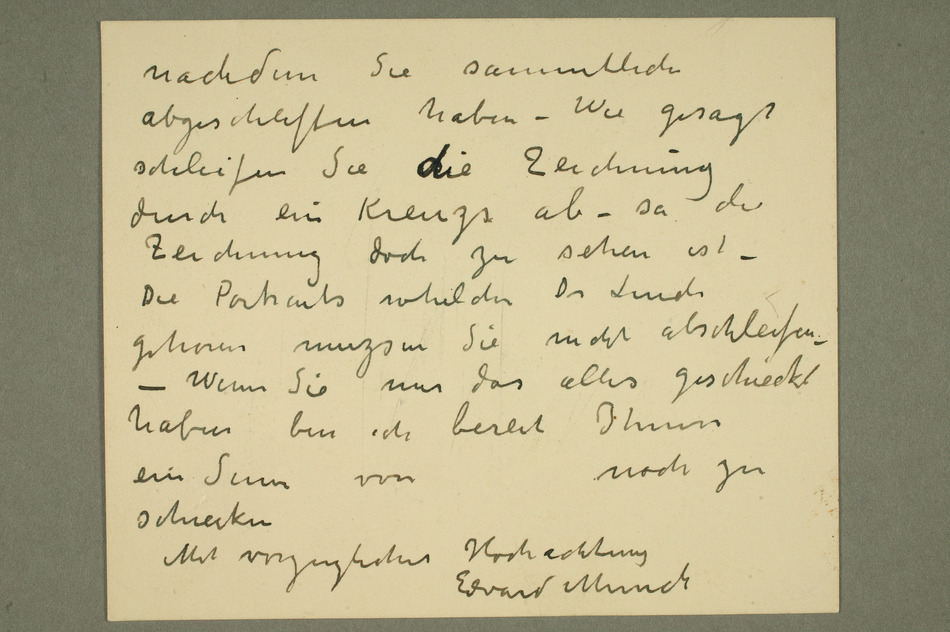 nachdem Sie sammtliche
abgeschleiffen haben – Wie gesagt
schleifen Sie die Zeichnung
durch ein Kreuzs ab – sa die
Zeichnung doch zu sehen ist –
Die Portraits whelche Dr Linde
gehoren muzsen Sie nicht abschleifen –
– Wenn Sie mir das alles geschieckt
haben bin ich bereit Ihnen
ein Sum von noch zu
schiecken
Mit vorzuglicher Hochachtung
Edvard Munch